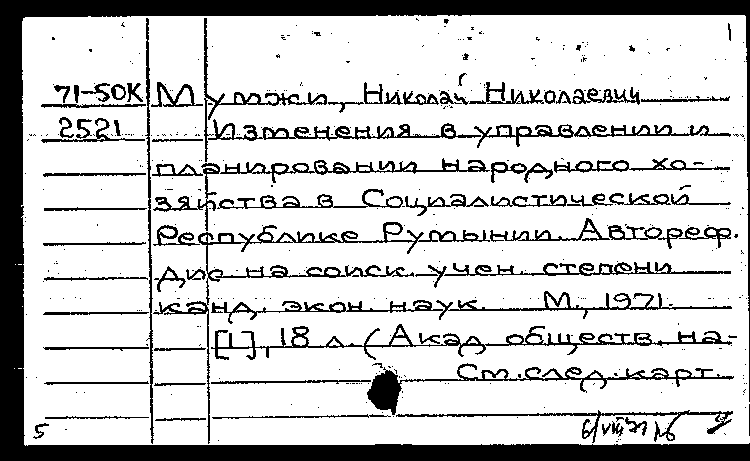 71-50К Мутжи, Николай Николаевич
2521 Изменения в управлении и
планировании народного хо-
зяйства в Социалистической
Республике Румынии. Автореф.
дис на соиск. учен. степени
канд. экон. наук. М., 1971.
[1], 18 л. (Акад обществ. на-
См.след.карт.
5